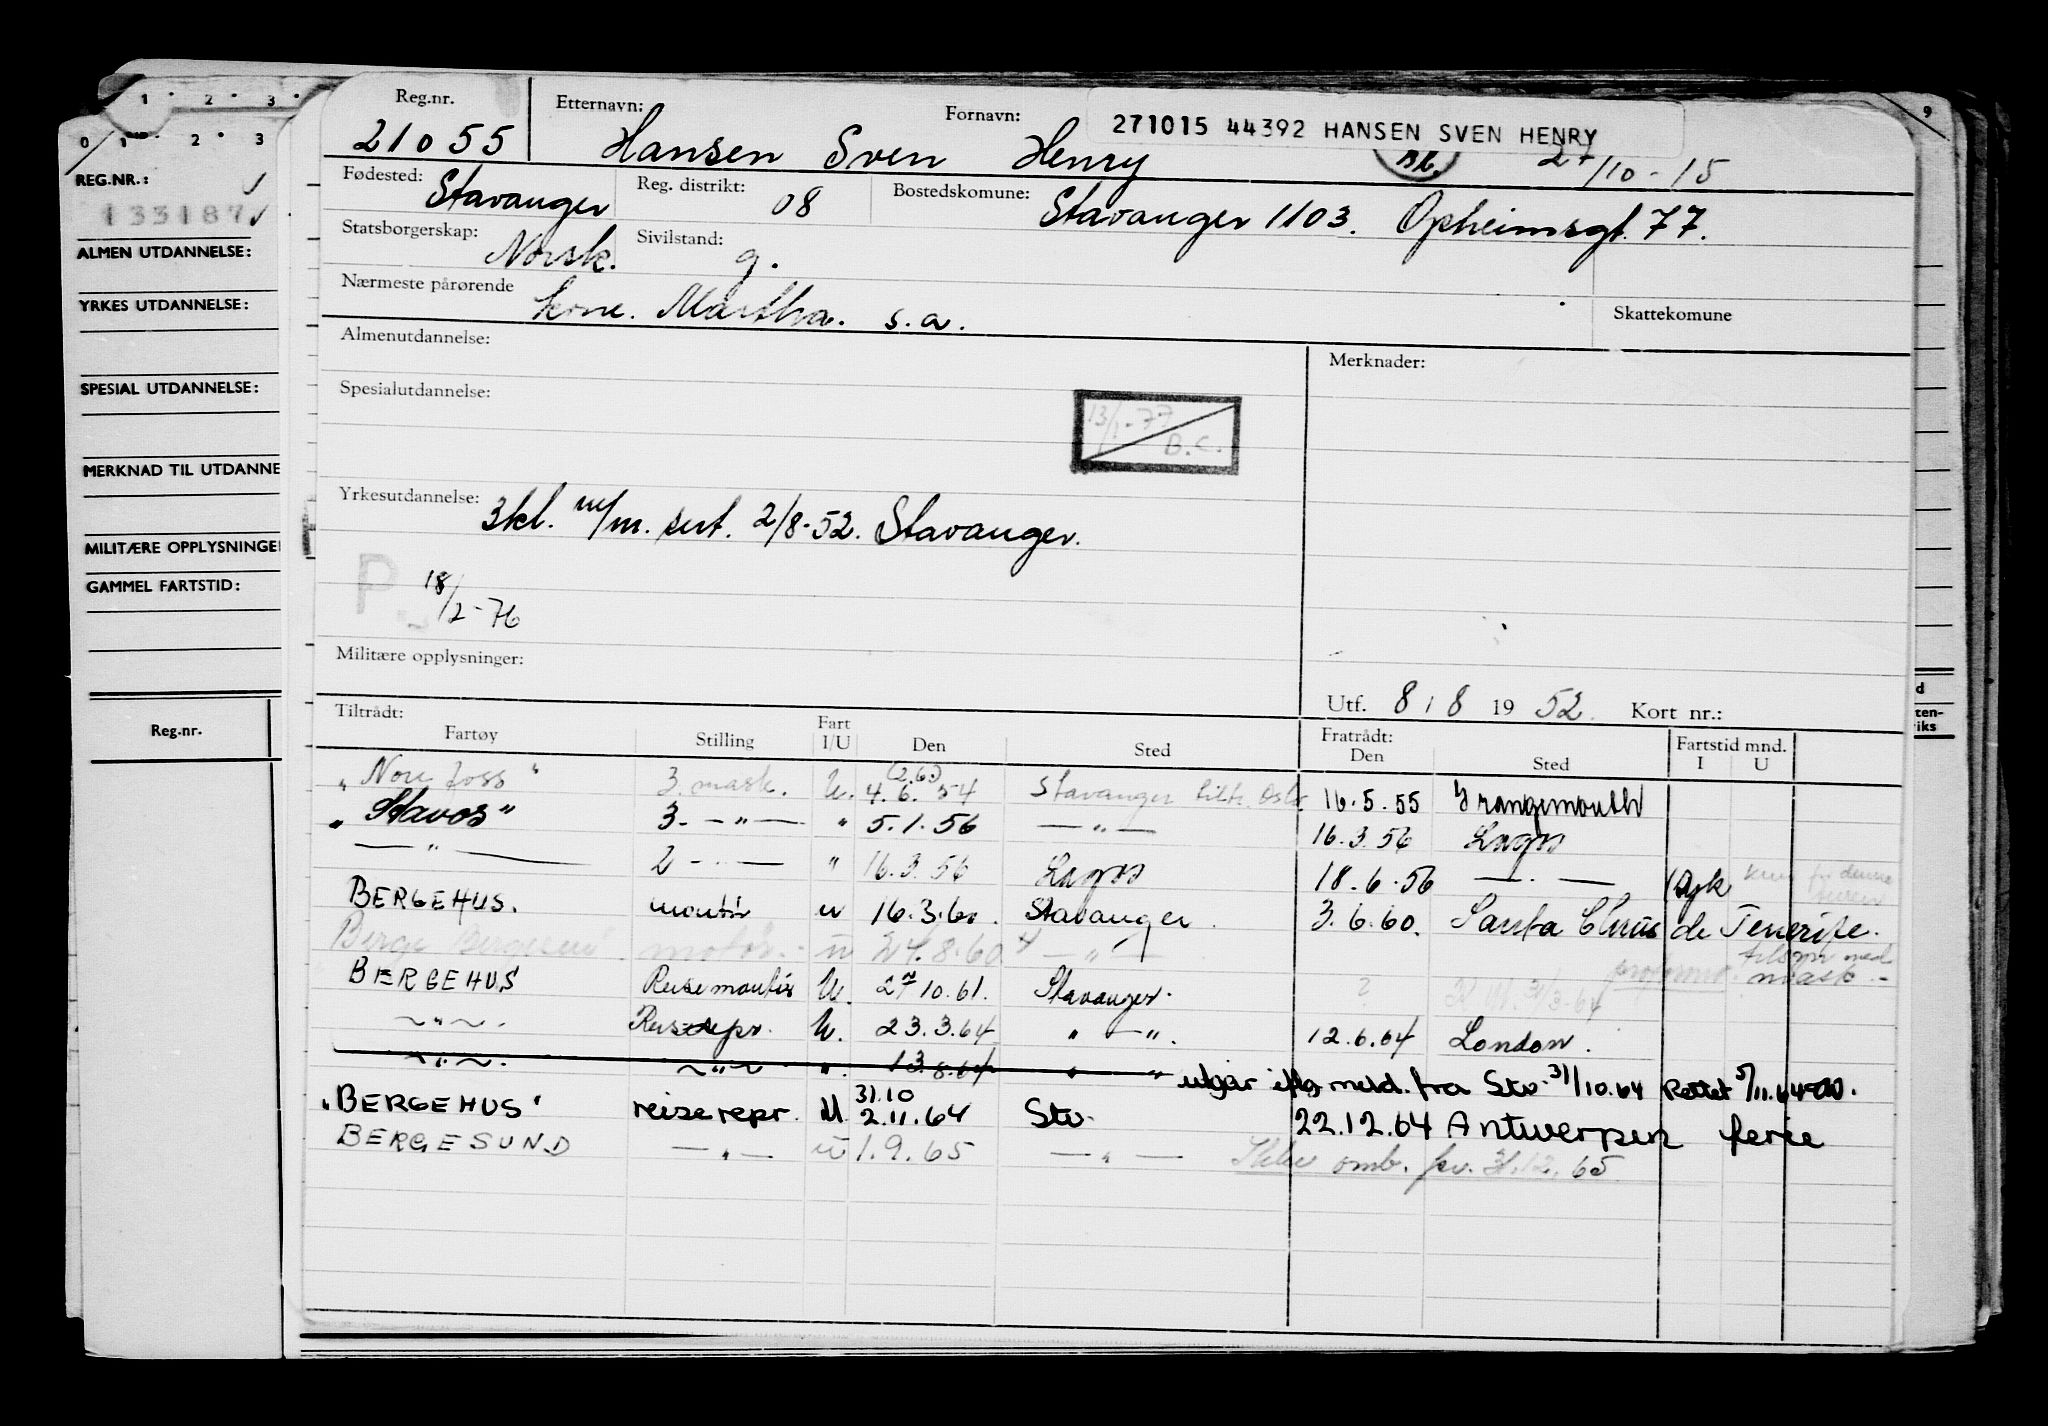 1 · 2 · 3 ·
0 1 2 3
REG.NR.:
133187
ALMEN UTDANNELSE:
YRKES UTDANNELSE:
SPESIAL UTDANNELSE:
MERKNAD TIL UTDANNE
MILITÆRE OPPLYSNINGE
GAMMEL FARTSTID:
Reg.nr.
Reg.nr. 21055
Etternavn: Hansen Sven
Fornavn: Henry
271015 44392 HANSEN SVEN HENRY
27/10-15
Fødested: Stavanger
Reg. distrikt: 08
Bostedskomune: Stavanger 1103. Opheimsgt. 77.
Statsborgerskap: Norsk.
Sivilstand: g.
Nærmeste pårørende kone. Martha. s.a.
Skattekomune
Almenutdannelse:
Merknader:
Spesialutdannelse:
13/1-77
B.C.
Yrkesutdannelse: 3kl. m/m. sert. 2/8-52. Stavanger.
P 18/2-76
Militære opplysninger:
Utf. 8 / 8 19 52. Kort nr.:
Tiltrådt:
Fartøy Stilling Fart I/U Den Sted
Fratrådt: Den Sted
Fartstid mnd. I U
(2.6.)
"Nore foss" 3. mask. U. 4.6.54 Stavanger tiltr. Oslo 16.5.55 Grangemouth
"Stavos" 3. —"— " 5.1.56 —"— 16.3.56 Lagos
—"— 2 —"— " 16.3.56 Lagos 18.6.56 —"—
BERGEHUS. montør u 16.3.60. Stavanger. 3.6.60. Santa Cruus de Tenerife.
Berge Bergesen motor. u 24.8.60 —"—
tilsm med
mask -
BERGEHUS Reisemontør U. 27 10.61. Stavanger. ?
~"~. Reiserepr. U. 23.3.64 " —". 12.6.64 London.
~"~. ~"~ ". 13.8.64 " " utgår iflg meld. fra Stv. 31/10.64 Rettet 5/11.64
31.10
"BERGEHUS" reiserepr. U 2.11.64 Stv. 22.12.64 Antwerpen ferie
BERGESUND —"— u 1.9.65 —"— omb. pr. 31.12.65
9
d
ten-
iks